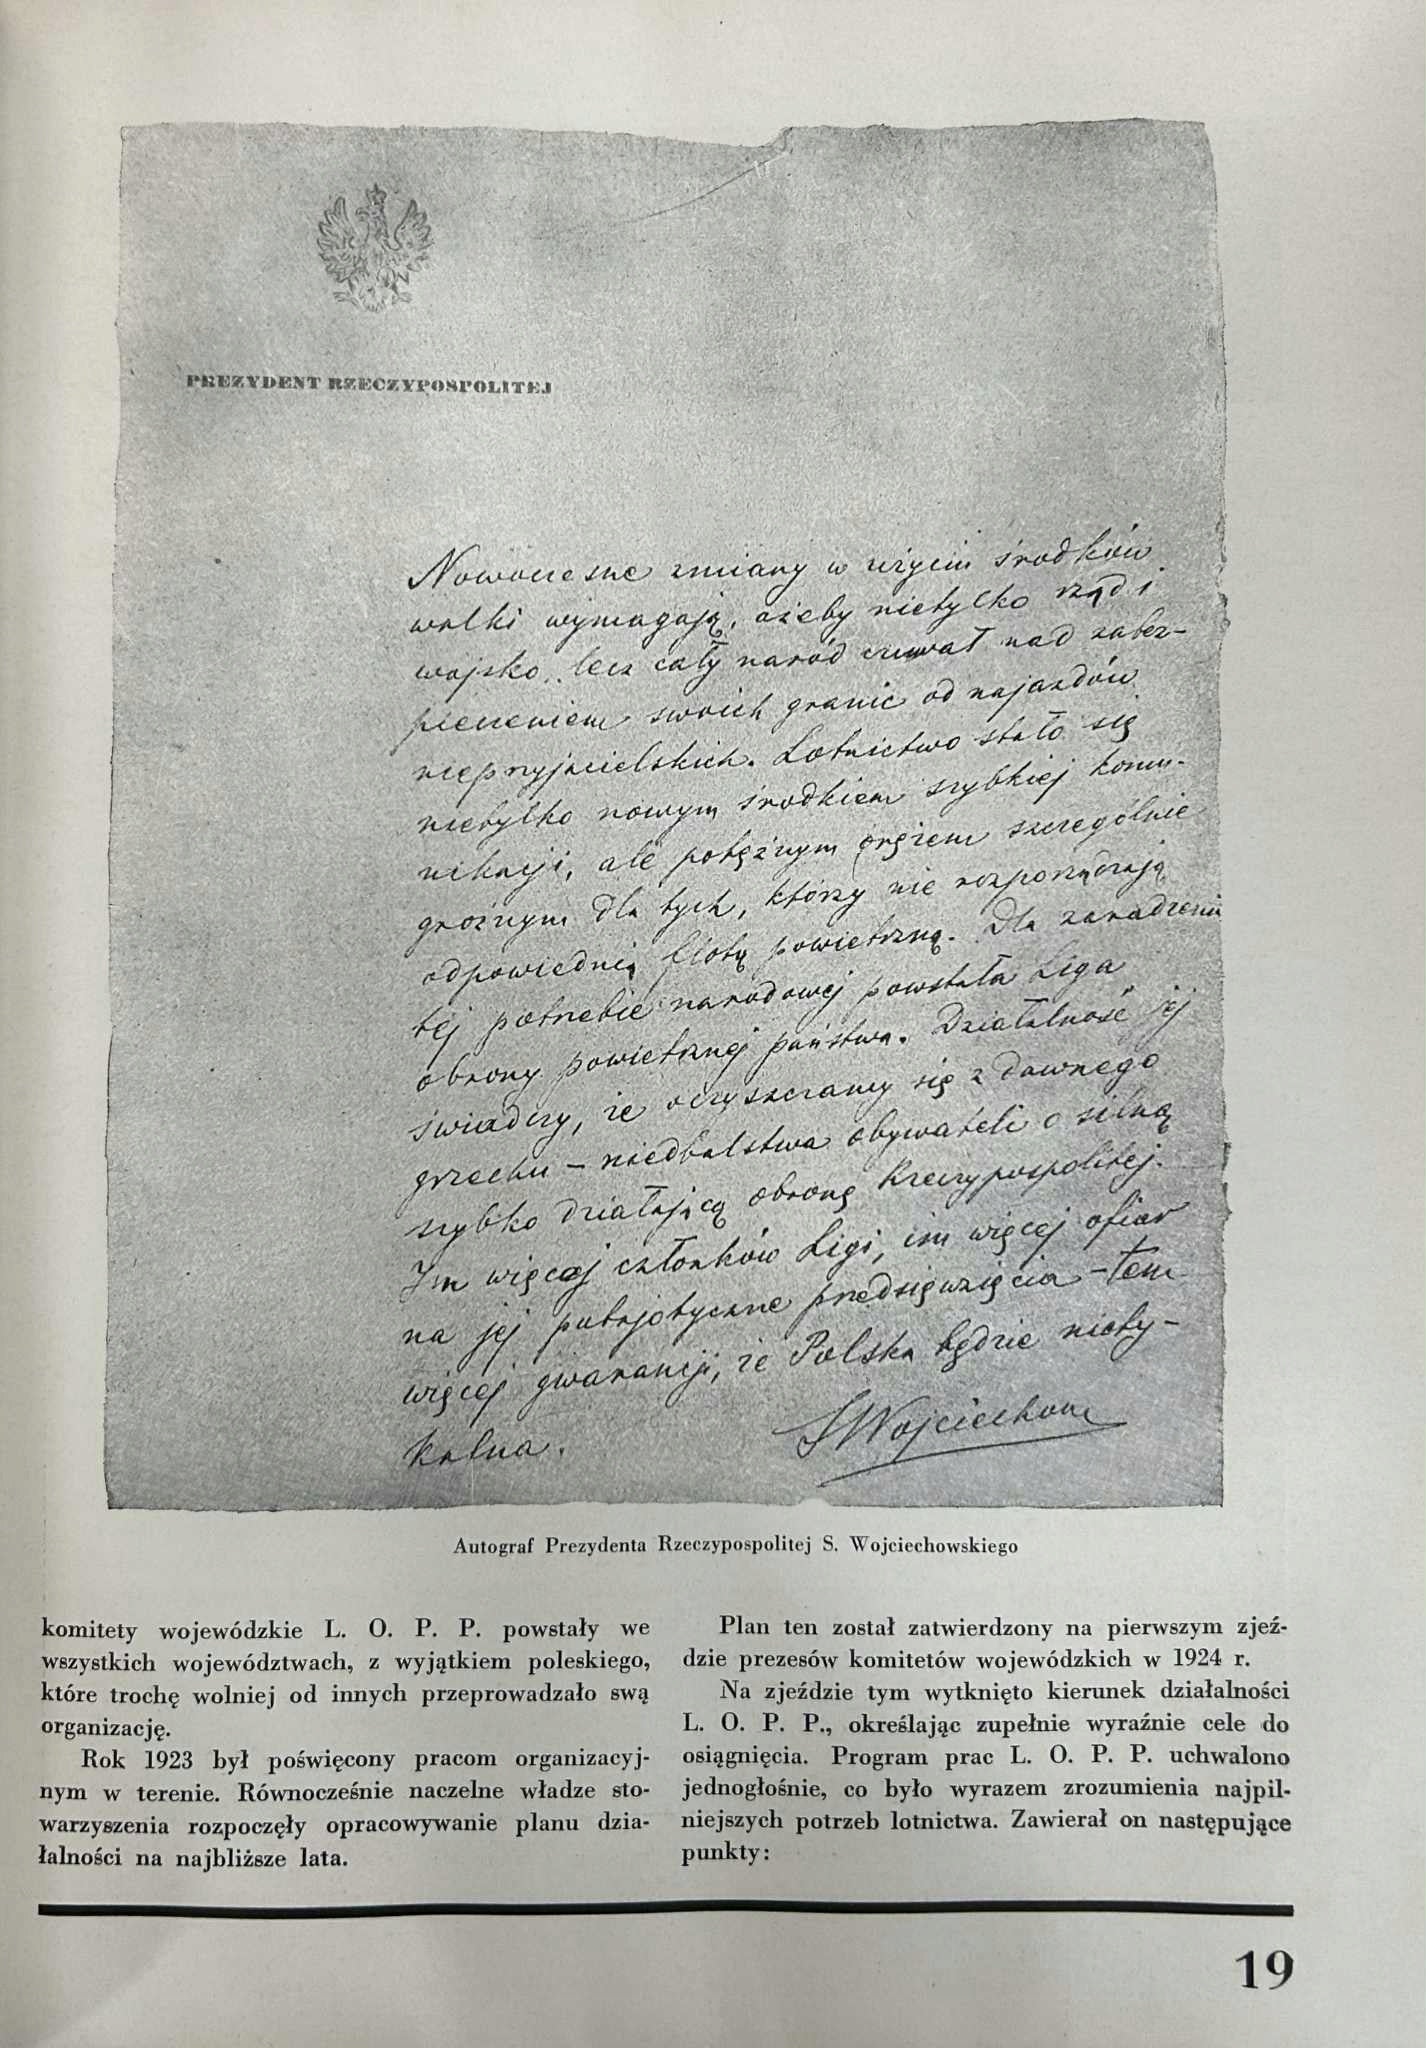 PREZYDENT RZECZYPOSPOLITEJ
Nowoczesne zmiany w użyciu środków
walki wymagają, ażeby nietylko rząd i
wojsko, lecz cały naród czuwał nad zabez-
pieczeniem swoich granic od najazdów
nieprzyjacielskich. Lotnictwo stało się
nietylko nowym środkiem szybkiej komu-
nikacji, ale potężnym orężem szczególnie
groźnym dla tych, którzy nie rozporządzają
odpowiednią flotą powietrzną. Dla zaradzenia
tej potrzebie narodowej powstała Liga
obrony powietrznej państwa. Działalność jej
świadczy, że oczyszczamy się z dawnego
grzechu – niedbalstwa obywateli o silną
szybko działającą obronę Rzeczypospolitej.
Im więcej członków Ligi, im więcej ofiar
na jej patrjotyczne przedsięwzięcia – tem
więcej gwarancji, że Polska będzie niety-
kalna.
SWojciechow
Autograf Prezydenta Rzeczypospolitej S. Wojciechowskiego
komitety wojewódzkie L. O. P. P. powstały we
wszystkich województwach, z wyjątkiem poleskiego,
które trochę wolniej od innych przeprowadzało swą
organizację.
Rok 1923 był poświęcony pracom organizacyj-
nym w terenie. Równocześnie naczelne władze sto-
warzyszenia rozpoczęły opracowywanie planu dzia-
łalności na najbliższe lata.
Plan ten został zatwierdzony na pierwszym zjeź-
dzie prezesów komitetów wojewódzkich w 1924 r.
Na zjeździe tym wytknięto kierunek działalności
L. O. P. P., określając zupełnie wyraźnie cele do
osiągnięcia. Program prac L. O. P. P. uchwalono
jednogłośnie, co było wyrazem zrozumienia najpil-
niejszych potrzeb lotnictwa. Zawierał on następujące
punkty:
19